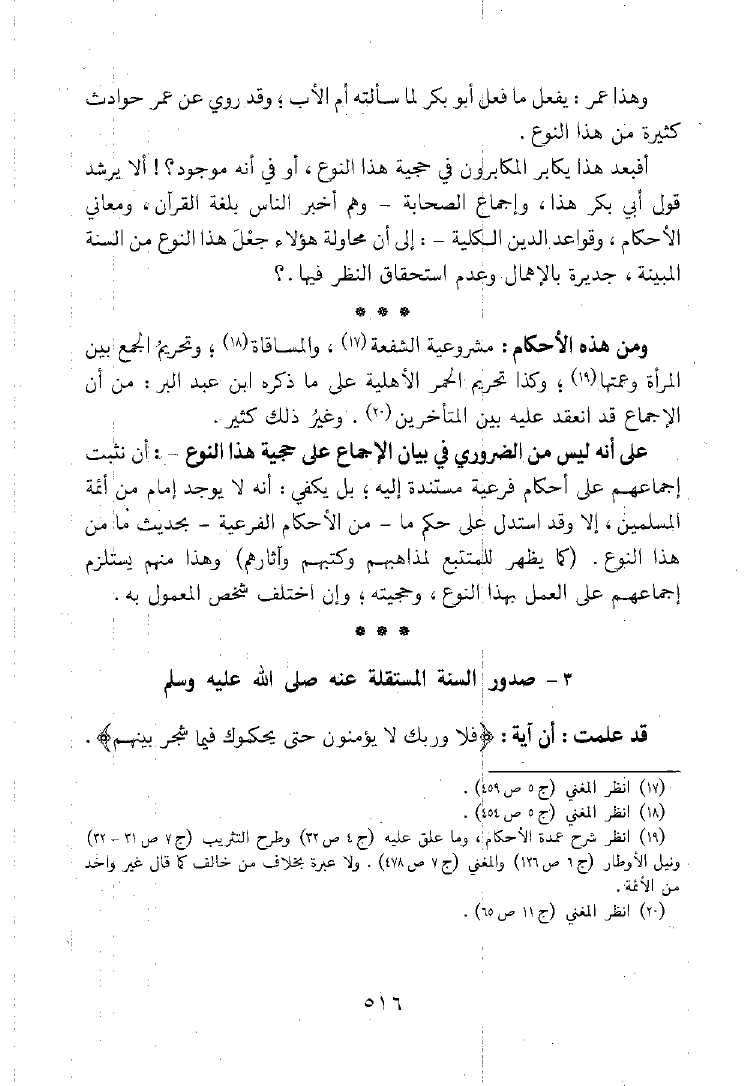 وهذا عمر : يفعل ما فعل أبو بكر لما سألته أم الأب ؛ وقد روي عن عمر حوادث
كثيرة من هذا النوع .
أفبعد هذا يكابر المكابرون في حجية هذا النوع ، أو في أنه موجود؟! ألا يرشد
قول أبي بكر هذا ، وإجماع الصحابة – وهم أخبر الناس بلغة القرآن ، ومعاني
الأحكام ، وقواعد الدين الكلية – : إلى أن محاولة هؤلاء جعْلَ هذا النوع من السنة
المبينة ، جديرة بالإهمال وعدم استحقاق النظر فيها .؟
* * *
ومن هذه الأحكام : مشروعية الشفعة (١٧) ، والمساقاة (١٨) ؛ وتحريمُ الجمع بين
المرأة وعمتها (١٩) ؛ وكذا تحريم الحمر الأهلية على ما ذكره ابن عبد البر : من أن
الإجماع قد انعقد عليه بين المتأخرين (٢٠) . وغيرُ ذلك كثير .
على أنه ليس من الضروري في بيان الإجماع على حجية هذا النوع – : أن نثبت
إجماعهم على أحكام فرعية مستندة إليه ؛ بل يكفي : أنه لا يوجد إمام من أئمة
المسلمين ، إلا وقد استدل على حكم ما – من الأحكام الفرعية – بحديث ما من
هذا النوع . (كما يظهر للمتتبع لمذاهبهم وكتبهم وآثارهم) وهذا منهم يستلزم
إجماعهم على العمل بهذا النوع ، وحجيته ؛ وإن اختلف شخص المعمول به .
* * *
٣ – صدور السنة المستقلة عنه صلى الله عليه وسلم
قد علمت : أن آية : ﴿فلا وربك لا يؤمنون حتى يحكموك فيما شجر بينهم﴾ .
(١٧) انظر المغني (ج ٥ ص ٤٥٩) .
(١٨) انظر المغني (ج ٥ ص ٤٥٤) .
(١٩) انظر شرح عمدة الأحكام ، وما علق عليه (ج ٤ ص ٣٢) وطرح التثريب (ج ٧ ص ٣١ – ٣٢)
ونيل الأوطار (ج ٦ ص ١٢٦) والمغني (ج ٧ ص ٤٧٨) . ولا عبرة بخلاف من خالف كما قال غير واحد
من الأئمة .
(٢٠) انظر المغني (ج ١١ ص ٦٥) .
٥١٦